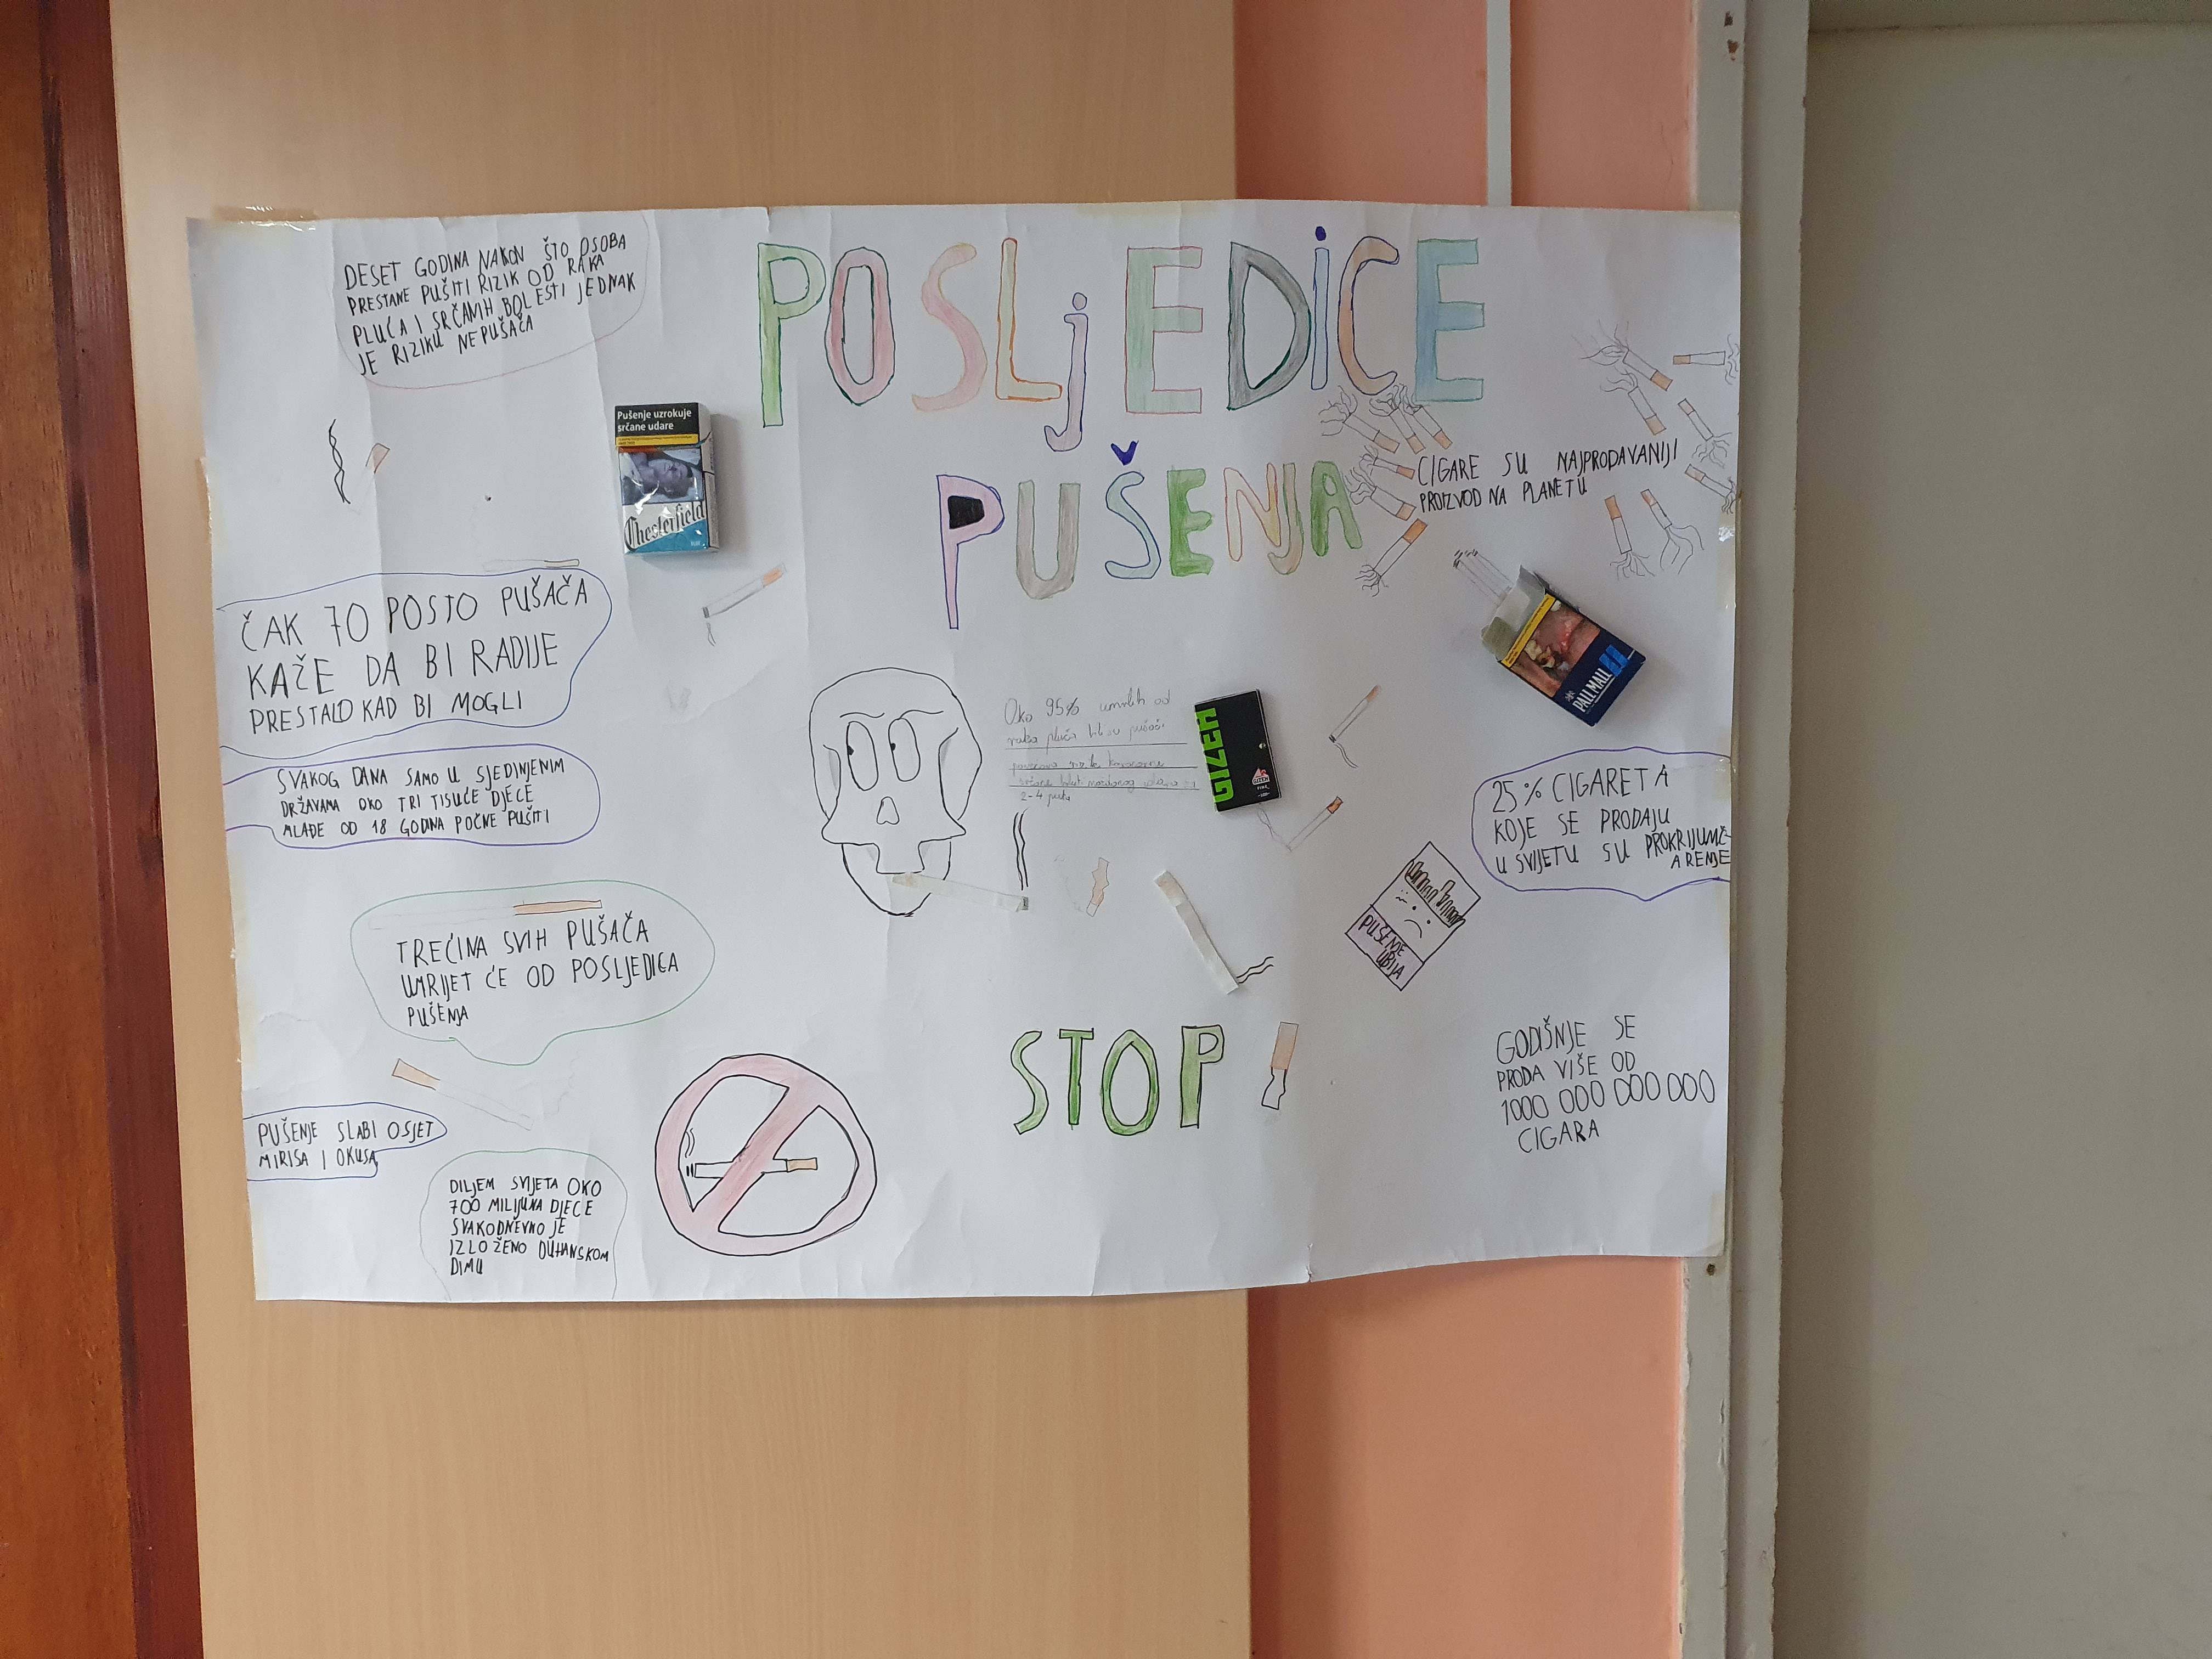 POSLjEDiCE
PUŠENJA
DESET GODINA NAKON ŠTO OSOBA
PRESTANE PUŠITI RIZIK OD RAKA
PLUĆA I SRČAMH BOLESTI JEDNAK
JE RIZIKU NEPUŠAČA
Pušenje uzrokuje
srčane udare
Chesterfield
BLUE
CIGARE SU NAJPRODAVANIJI
PROIZVOD NA PLANETU
PALL MALL
ČAK 70 POSTO PUŠAČA
KAŽE DA BI RADIJE
PRESTALO KAD BI MOGLI
Oko 95% umrlih od
raka pluća bili su pušači
2-4 puta
GIZEH
GIZEH
FINE
SVAKOG DANA SAMO U SJEDINJENIM
DRŽAVAMA OKO TRI TISUĆE DJECE
MLAĐE OD 18 GODINA POČNE PUŠITI
25% CIGARETA
KOJE SE PRODAJU
U SVIJETU SU PROKRIJUMČ-
ARENJE
PUŠENJE
UBIJA
TREĆINA SVIH PUŠAČA
UMRIJET ĆE OD POSLJEDICA
PUŠENJA
STOP
GODIŠNJE SE
PRODA VIŠE OD
1000 000 000 000
CIGARA
PUŠENJE SLABI OSJET
MIRISA I OKUSA
DILJEM SVIJETA OKO
700 MILIJUNA DJECE
SVAKODNEVNO JE
IZLOŽENO DUHANSKOM
DIMU